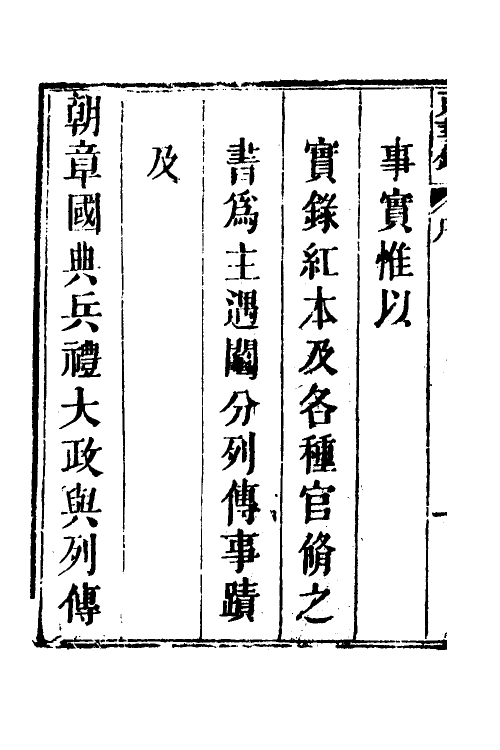 事實惟以
實錄紅本及各種官脩之
書爲主遇闔分列傳事蹟
及
朝章國典兵禮大政與列傳